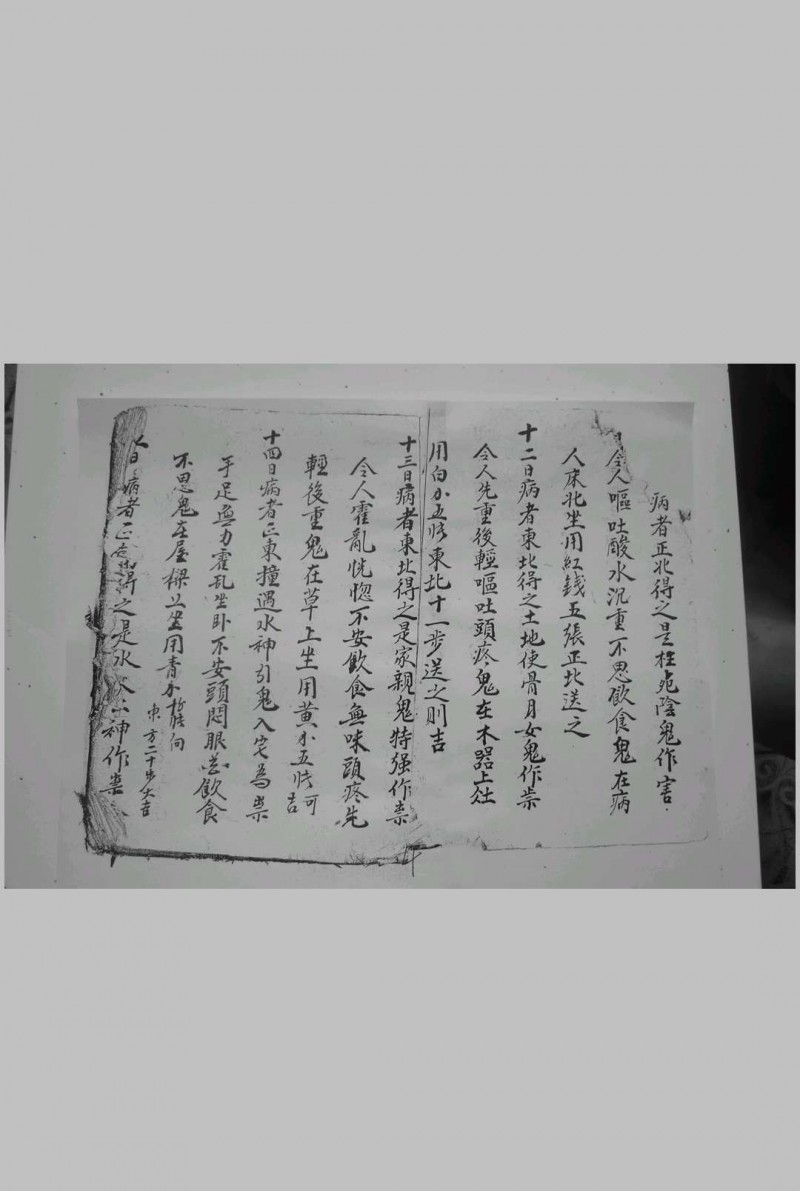 病者正北得之是枉死陰鬼作害
令人嘔吐酸水沉重不思飲食鬼在病
人床北坐用紅錢五張正北送之
十二日病者東北得之土地使骨月女鬼作祟
令人先重後輕嘔吐頭疼鬼在木器上
用白五東北十一步送之則吉
十三日病者東北得之是家親鬼特强作祟
令人霍亂恍惚不安飲食無味頭疼先
輕後重鬼在草上坐用黃五可
吉
十四日病者正東撞遇水神引鬼入宅為祟
手足無力霍乱坐卧不安頭悶眼飲食
不思鬼在屋樑上坐用青向
東方二十步大吉
日病者正得之是水神作祟